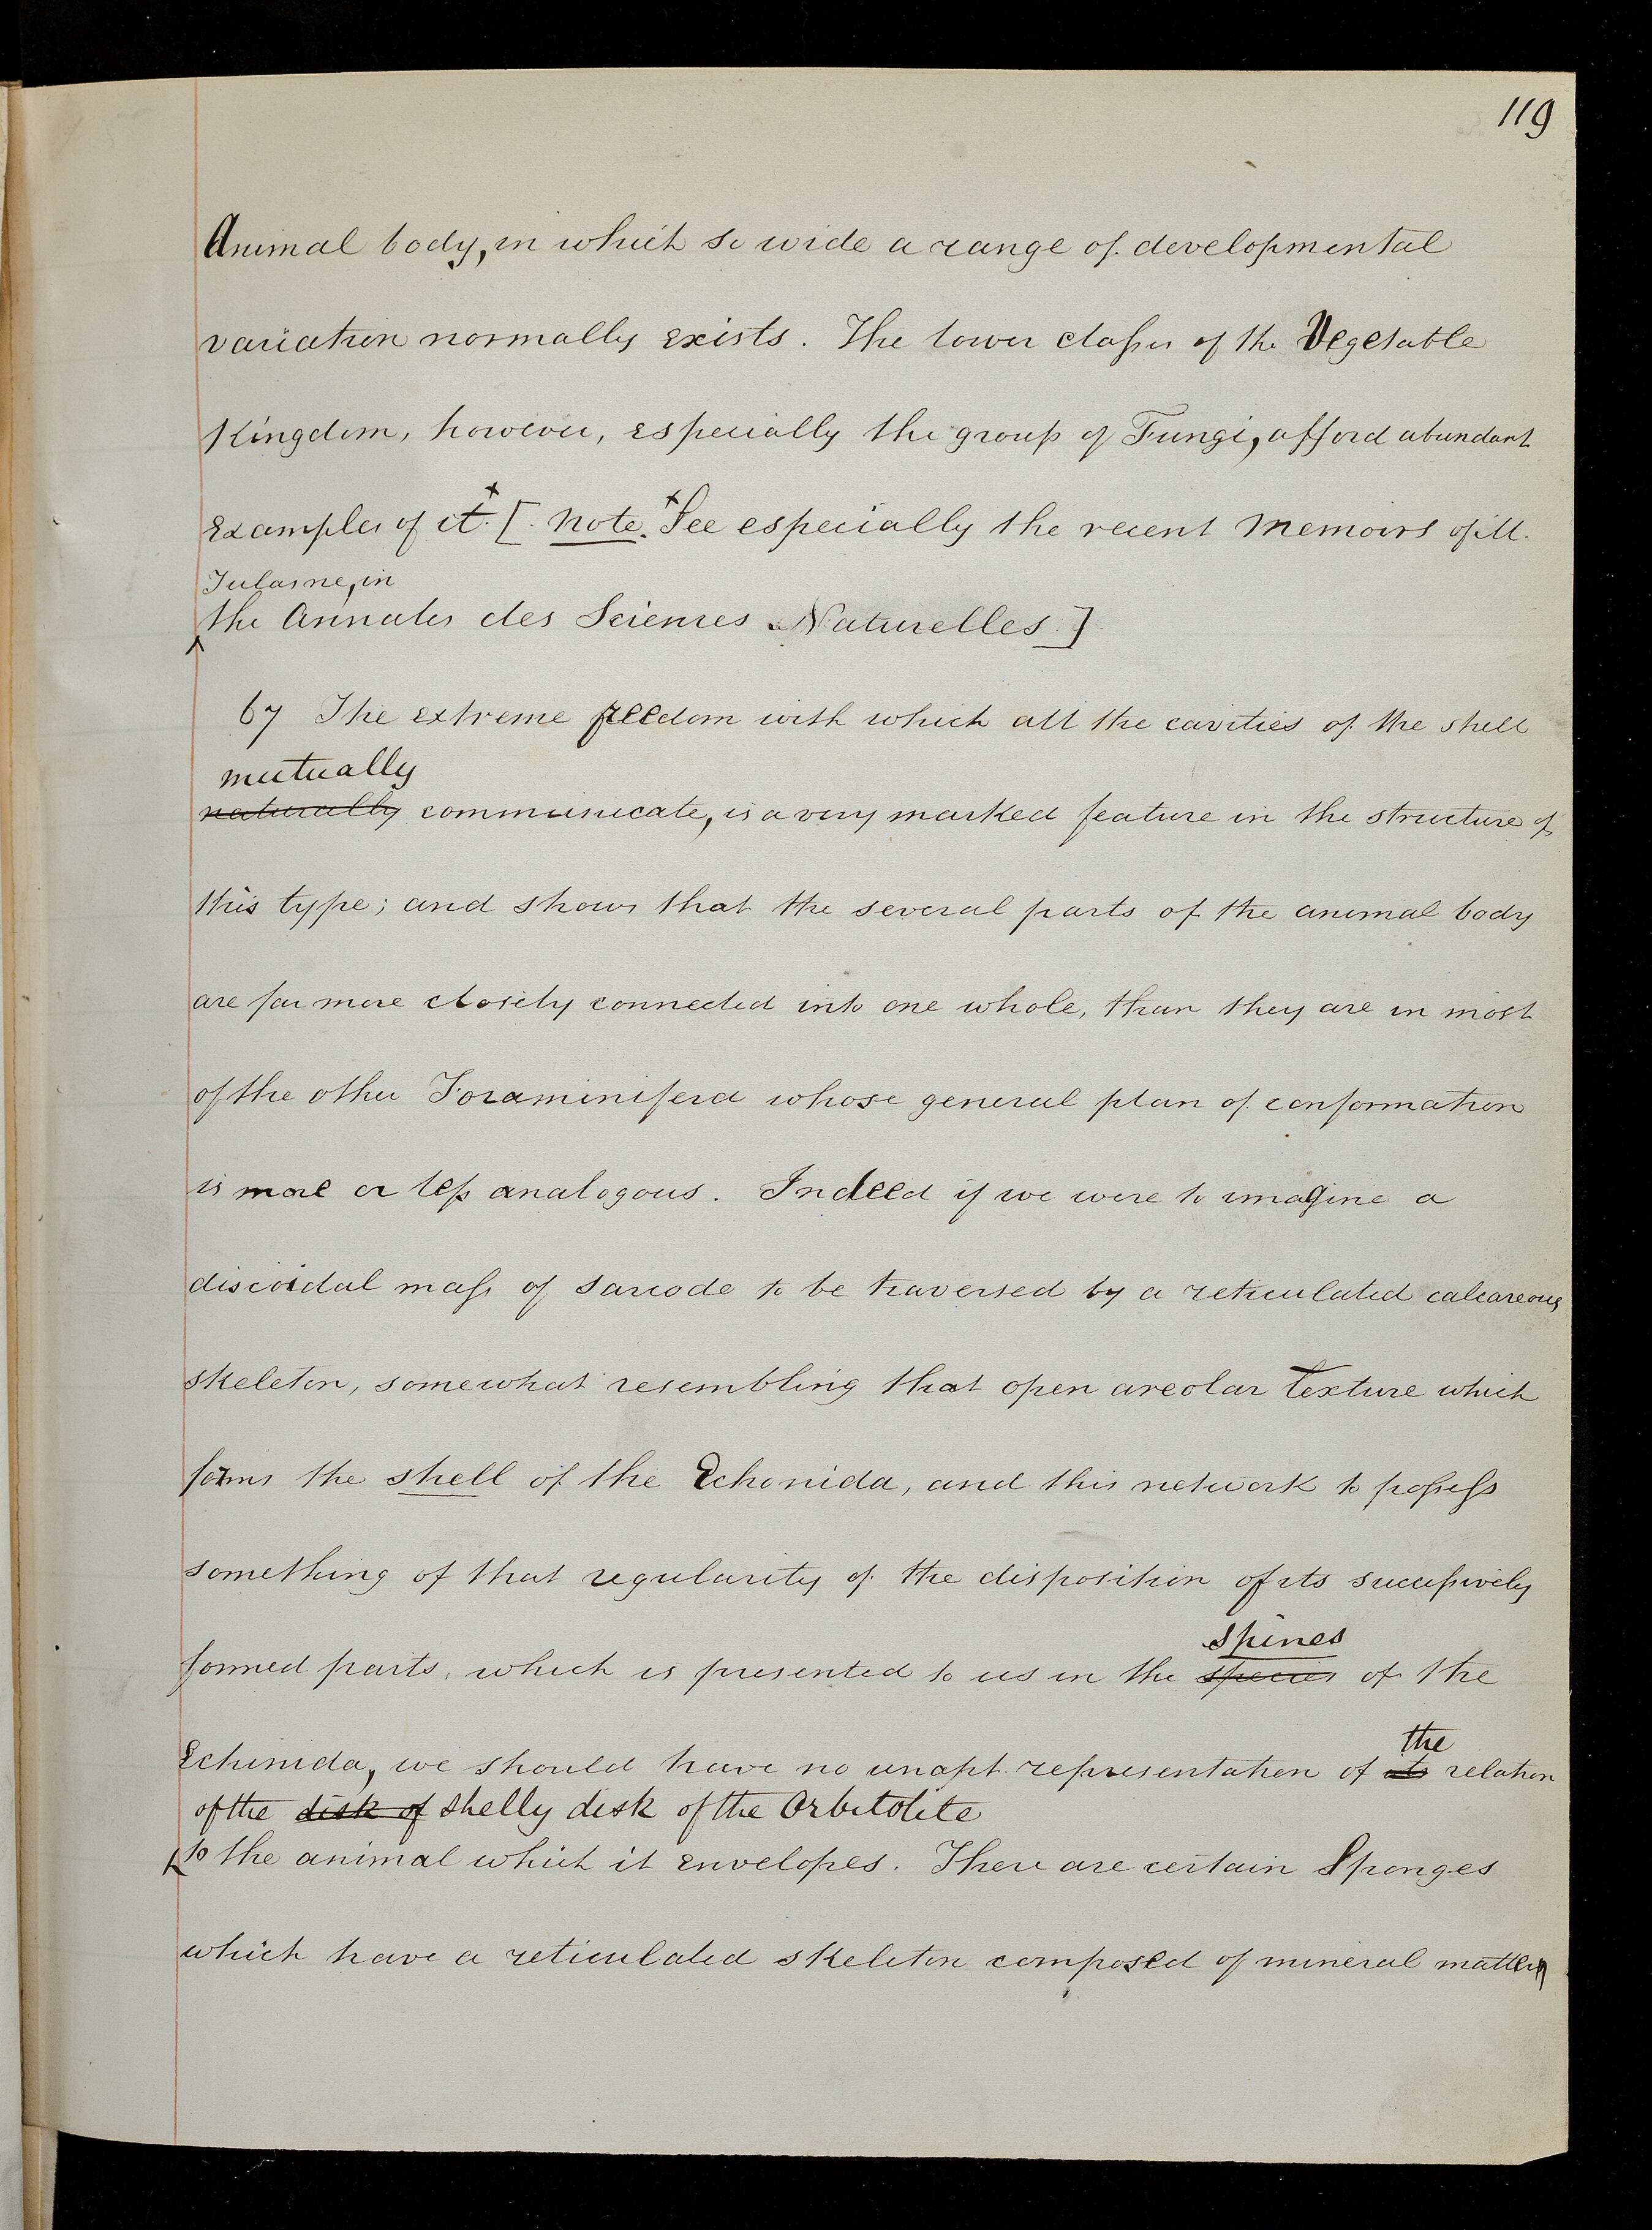 119
Animal body, in which so wide a range of developmental
variation normally exists. The lower classes of the Vegetable
Kingdom, however, especially the group of Fungi, afford abundant
examples of it.x [Note. xSee especially the recent Memoirs of M.
Tulasne, in
the Annales des Sciences Naturelles.]
67 The extreme freedom with which all the cavities of the shell
mutually
naturally communicate, is a very marked feature in the structure of
this type; and shows that the several parts of the animal body
are far more closely connected into one whole, than they are in most
of the other Foraminifera whose general plan of conformation
is more or less analogous. Indeed if we were to imagine a
discoidal mass of sarcode to be traversed by a reticulated calcareous
skeleton, somewhat resembling that open areolar texture which
forms the shell of the Echonida, and this network to possess
something of that regularity of the disposition of its successively
spines
formed parts, which is presented to us in the species of the
the
Echinida, we should have no unapt representation of its relation
of the disk of shelly disk of the Orbitolite
to the animal which it envelopes. There are certain Sponges
which have a reticulated skeleton composed of mineral matter,